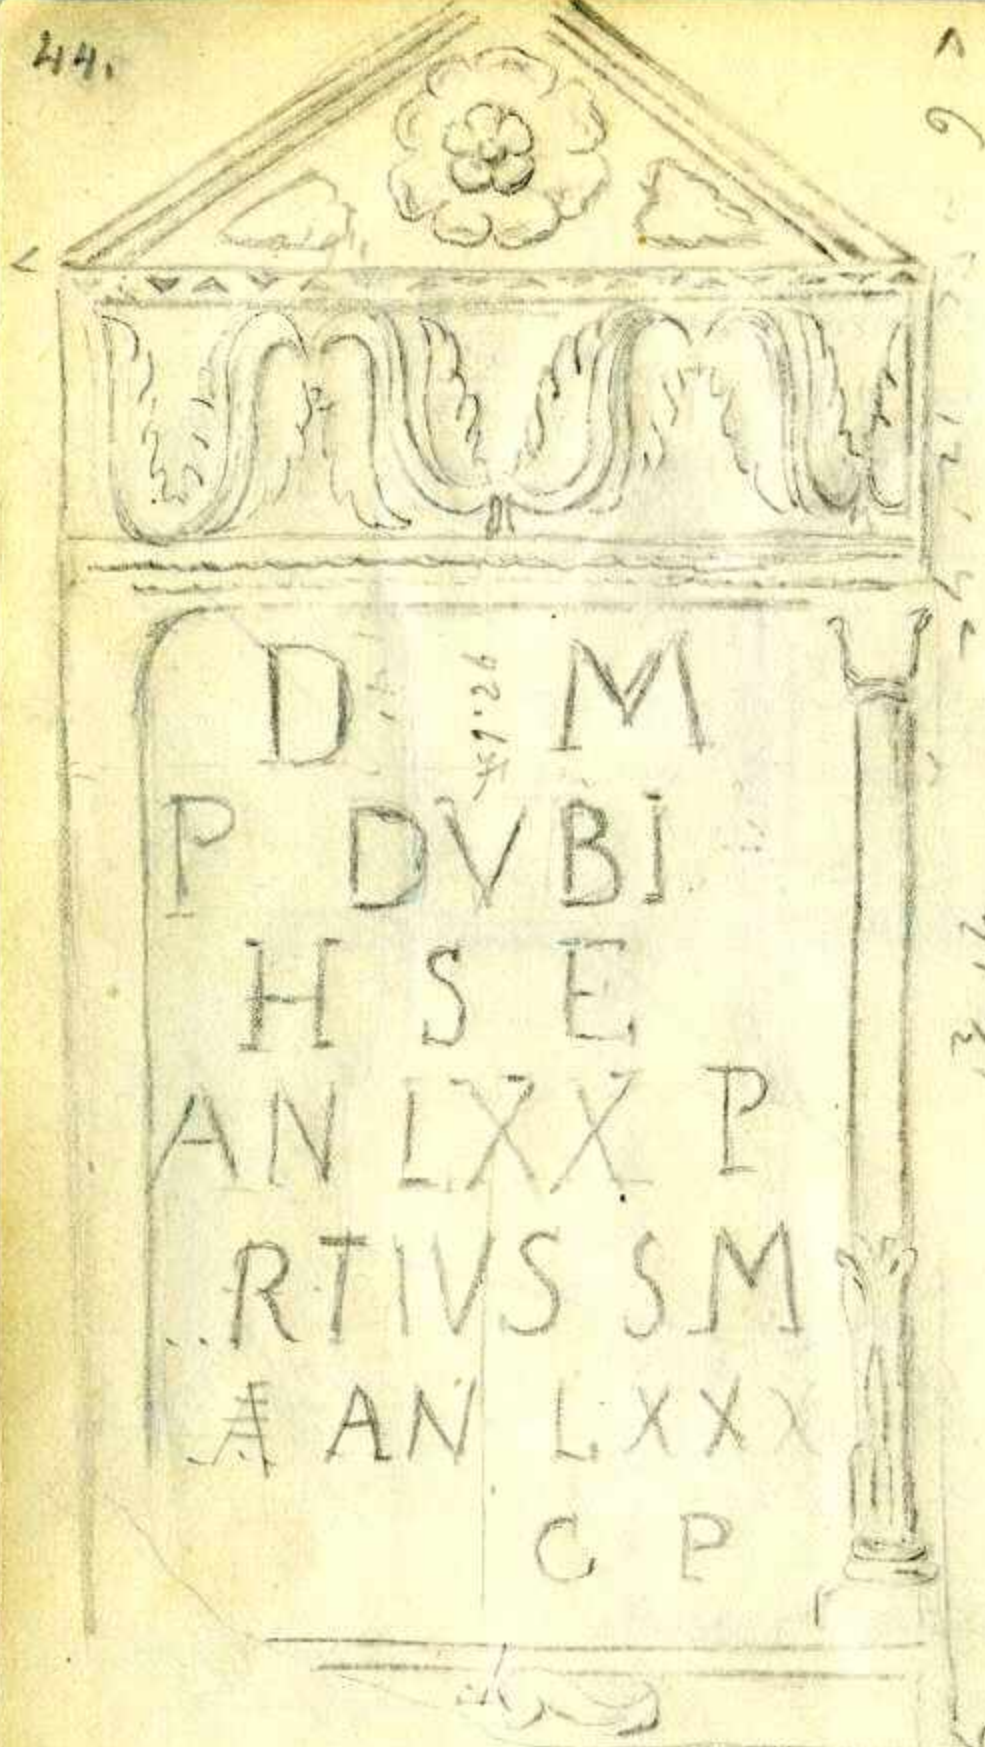 44.
D M
P DVBI
H S E
AN LXX P
..RTIVS SM
AN LXXX
C P